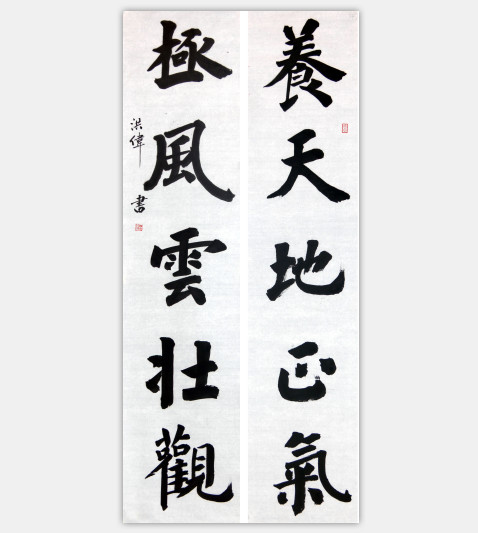 養天地正氣
極風雲壯觀
洪偉書